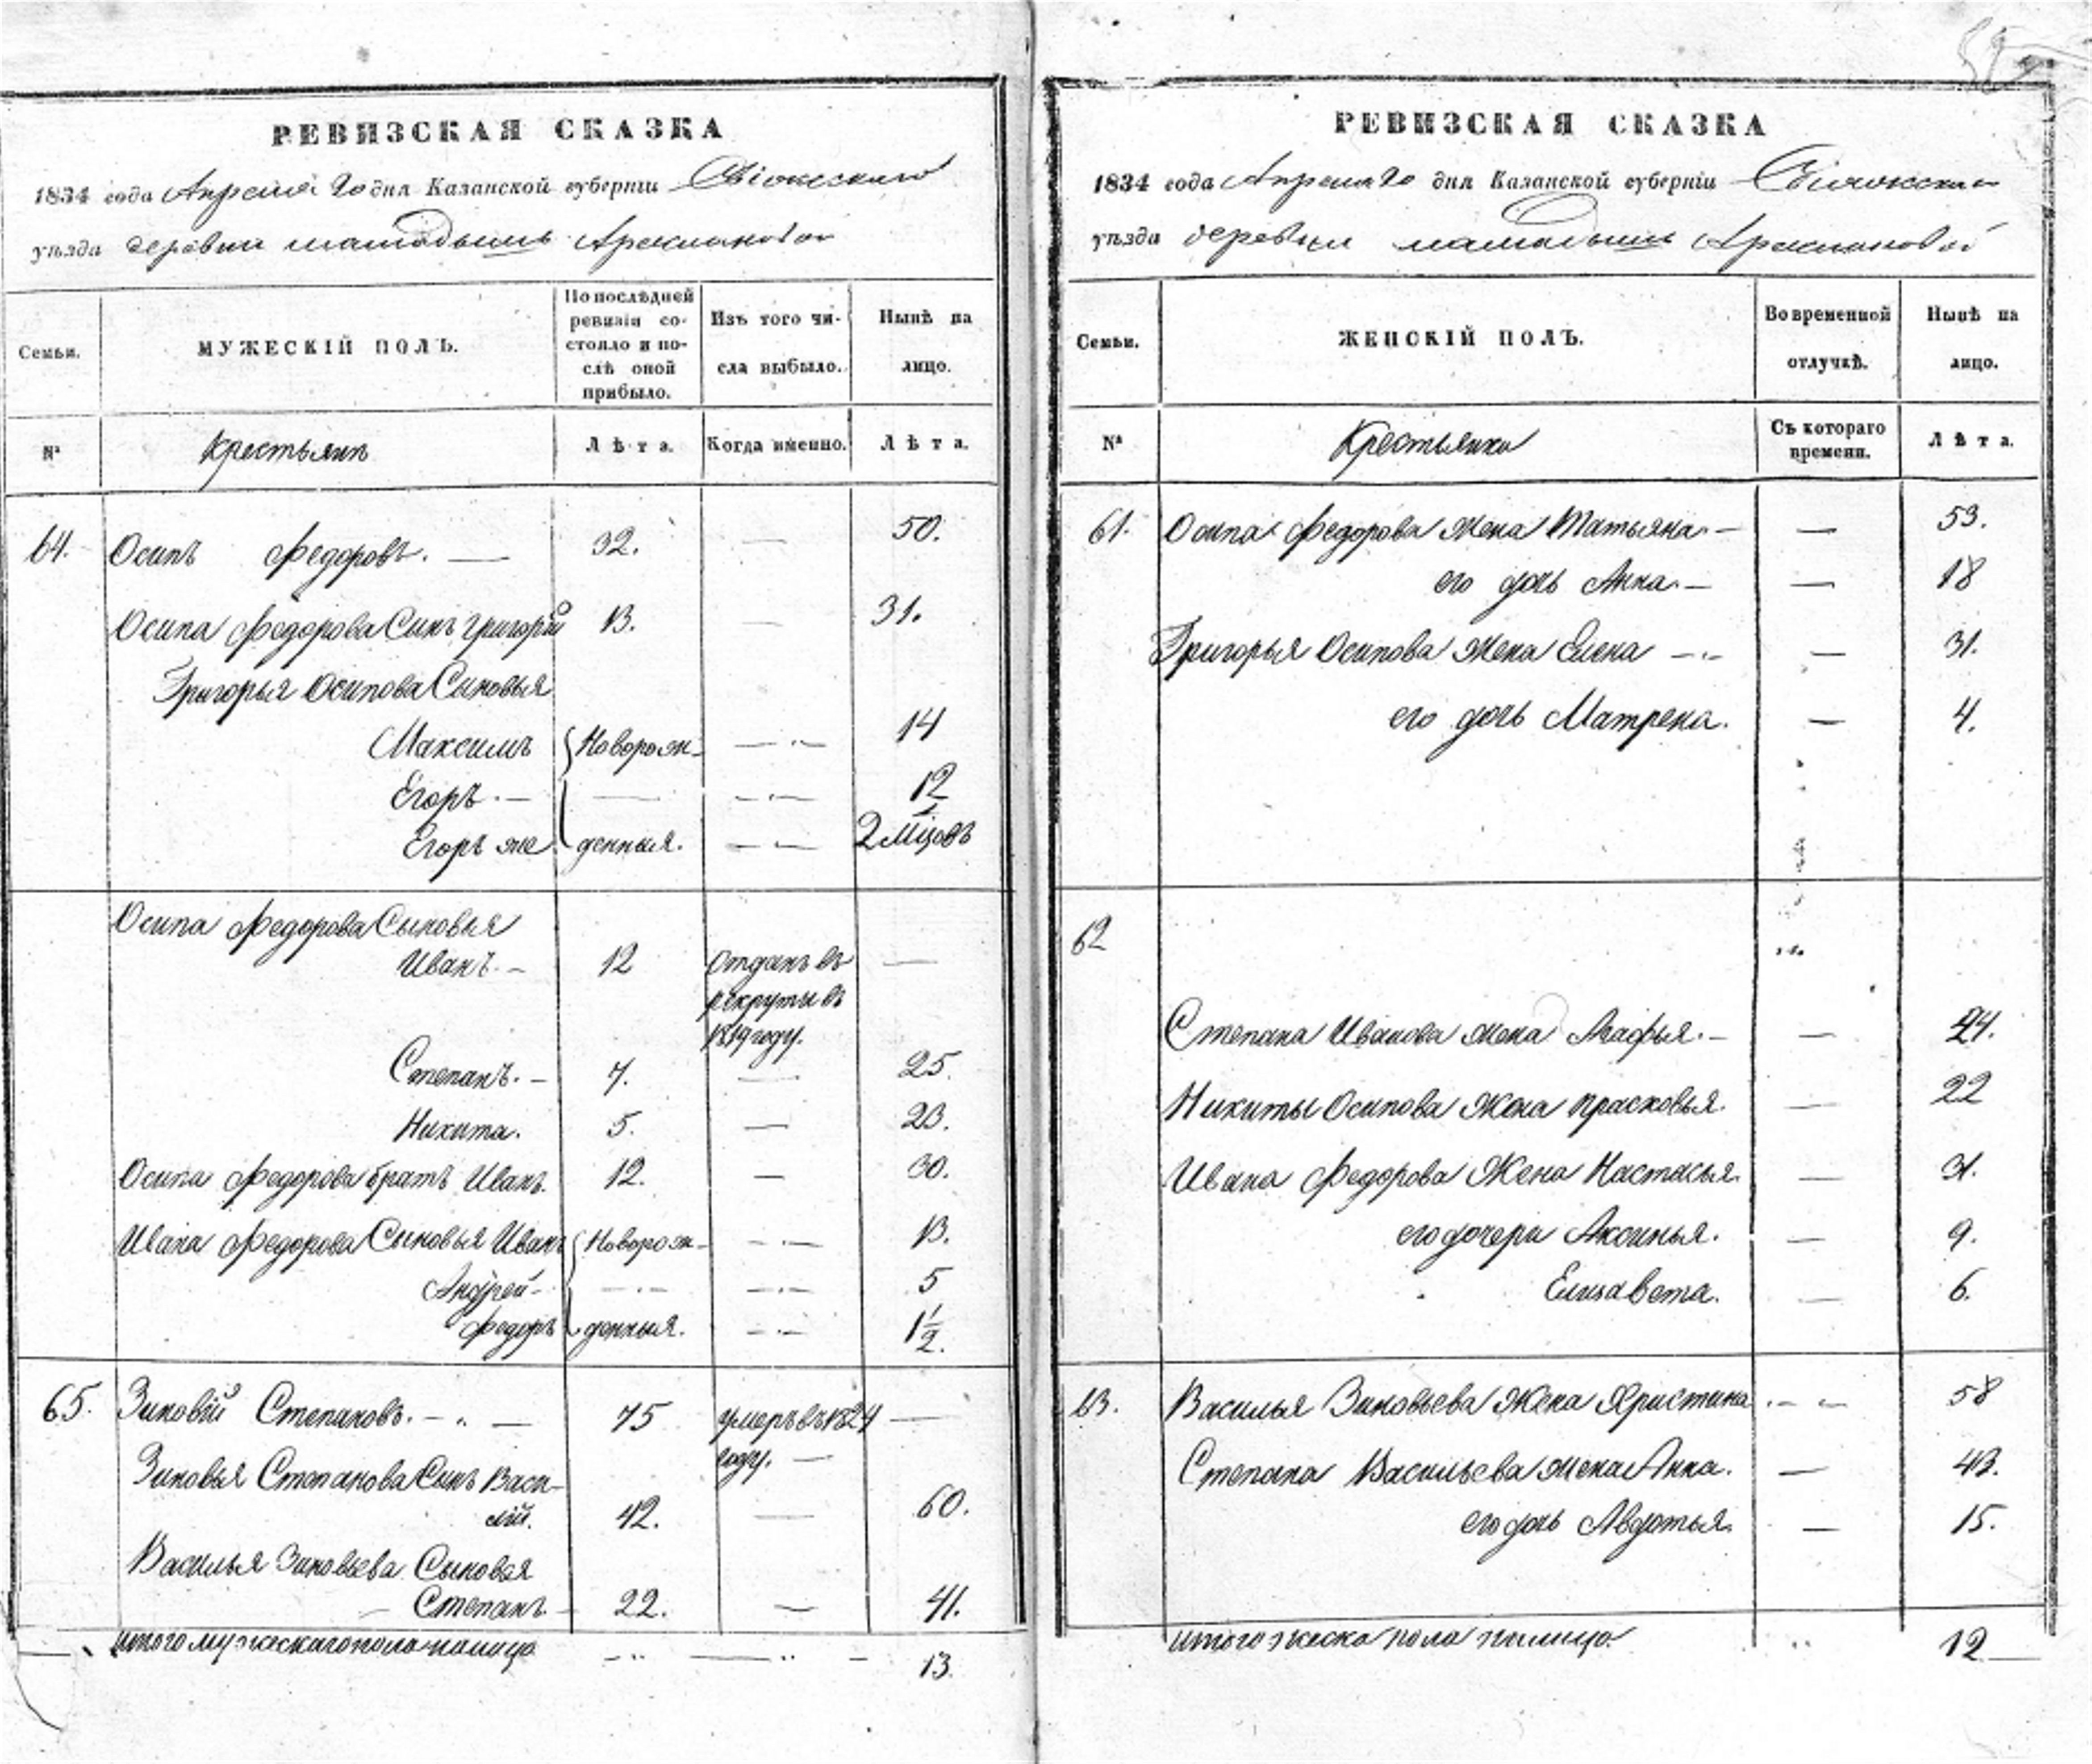 РЕВИЗСКАЯ СКАЗКА
1834 года Апреля 20 дня Казанской губерніи Свіяжскаго
уѣзда деревни Аре
Семьи.
МУЖЕСКІЙ ПОЛЪ.
По послѣдней ревизіи состояло и послѣ оной прибыло.
Изъ того числа выбыло.
Нынѣ на лицо.
№
Крестьянъ
Лѣта.
Когда именно.
Лѣта.
64. Осипъ Федоровъ. — 32. — 50.
Осипа Федорова Сынъ Григорій 13. — 31.
Григорья Осипова Сыновья
Максимъ Новорож- — 14
Егоръ. — — — 12
Егоръ же денныя. — 2 мѣцовъ
Осипа Федорова Сыновья
Иванъ. — 12 отданъ въ —
рекруты въ
1819 году.
Степанъ. — 7. — 25.
Никита. 5. — 23.
Осипа Федорова братъ Иванъ. 12. — 30.
Ивана Федорова Сыновья Иванъ Новорож- — 13.
Андрей — — — 5
Федоръ денныя. — 1 1/2.
65. Зиновій Степановъ. — 75 умеръ въ 1824 —
году. —
Зиновья Степанова Сынъ Васи-
лій. 42. — 60.
Василья Зиновьева Сыновья
Степанъ. — 22. — 41.
итого мужескаго пола налицо — — 13.
РЕВИЗСКАЯ СКАЗКА
1834 года Апреля 20 дня Казанской губерніи Свіяжскаго
уѣзда деревни
Семьи.
ЖЕНСКІЙ ПОЛЪ.
Во временной отлучкѣ.
Нынѣ на лицо.
№
Крестьянки
Съ котораго времени.
Лѣта.
61. Осипа Федорова Жена Татьяна. — — 53.
его дочь Анна. — — 18
Григорья Осипова Жена Елена — — 31.
его дочь Матрена. — 4.
62
Степана Иванова жена Агафья. — — 24.
Никиты Осипова Жена Прасковья. — 22
Ивана Федорова Жена Настасья. — 31.
его дочери Аксинья. — 9.
Елизавета. — 6.
63. Василья Зиновьева Жена Христина — 58
Степана Васильева жена Анна. — 43.
его дочь Авдотья. — 15.
итого женска пола налицо 12